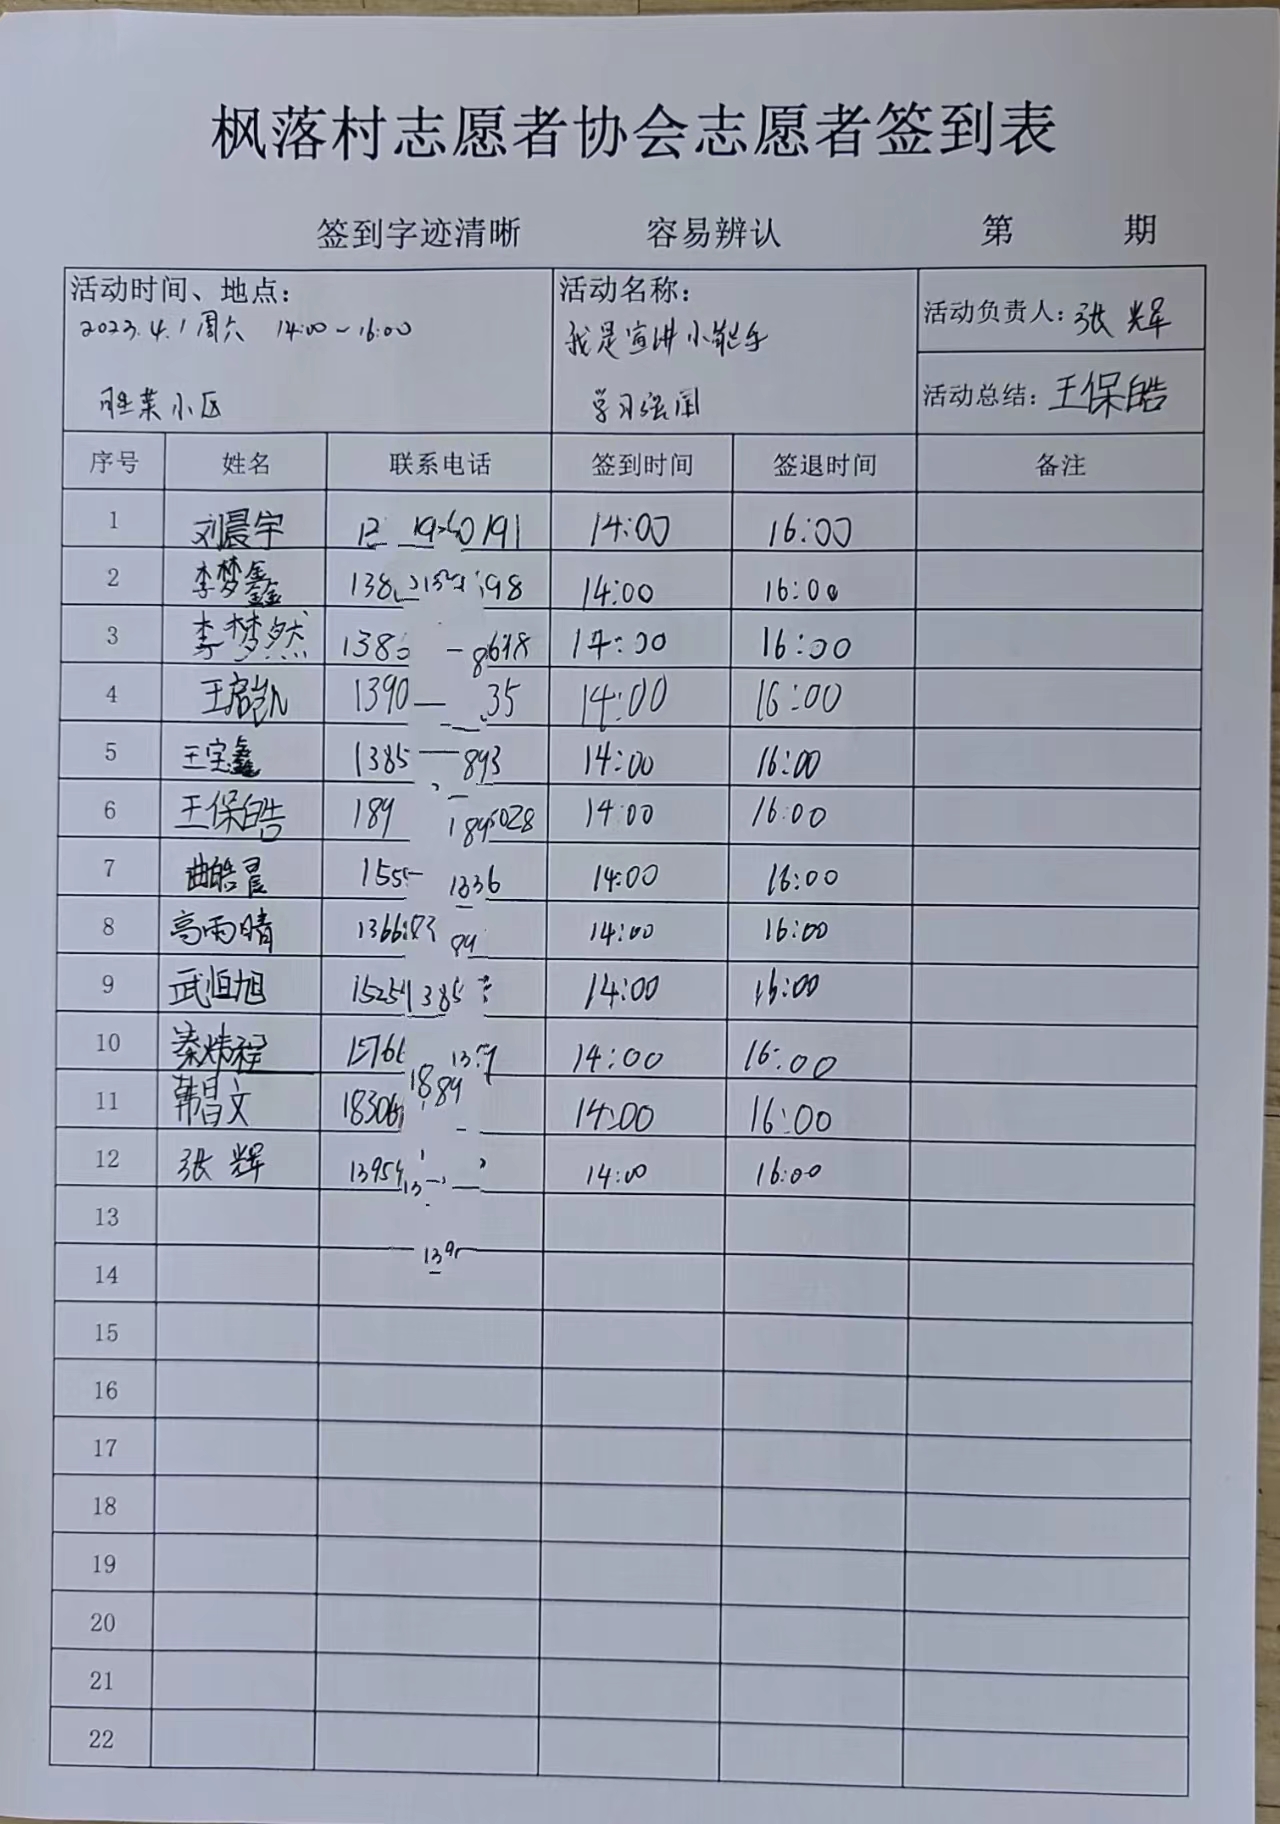 枫落村志愿者协会志愿者签到表
签到字迹清晰 容易辨认 第 期
活动时间、地点:
2023.4.1周六 14:00~16:00
小区
活动名称:
我是宣讲小能手
学习强国
活动负责人: 张辉
活动总结: 王保皓
序号 姓名 联系电话 签到时间 签退时间 备注
1 刘晨宇 14:00 16:00
2 李梦鑫 14:00 16:00
3 李梦然 14:00 16:00
4 王启凯 14:00 16:00
5 王宝鑫 14:00 16:00
6 王保皓 14:00 16:00
7 曲皓晨 14:00 16:00
8 高雨晴 14:00 16:00
9 武恒旭 14:00 16:00
10 秦炜程 14:00 16:00
11 韩昌文 14:00 16:00
12 张辉 14:00 16:00
13
14
15
16
17
18
19
20
21
22